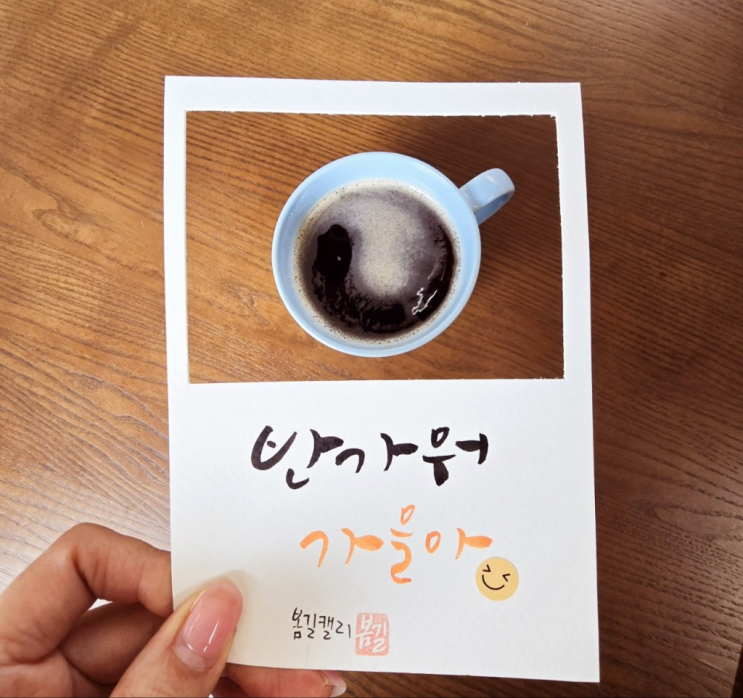 반가워
가을아
봄길캘리 봄길